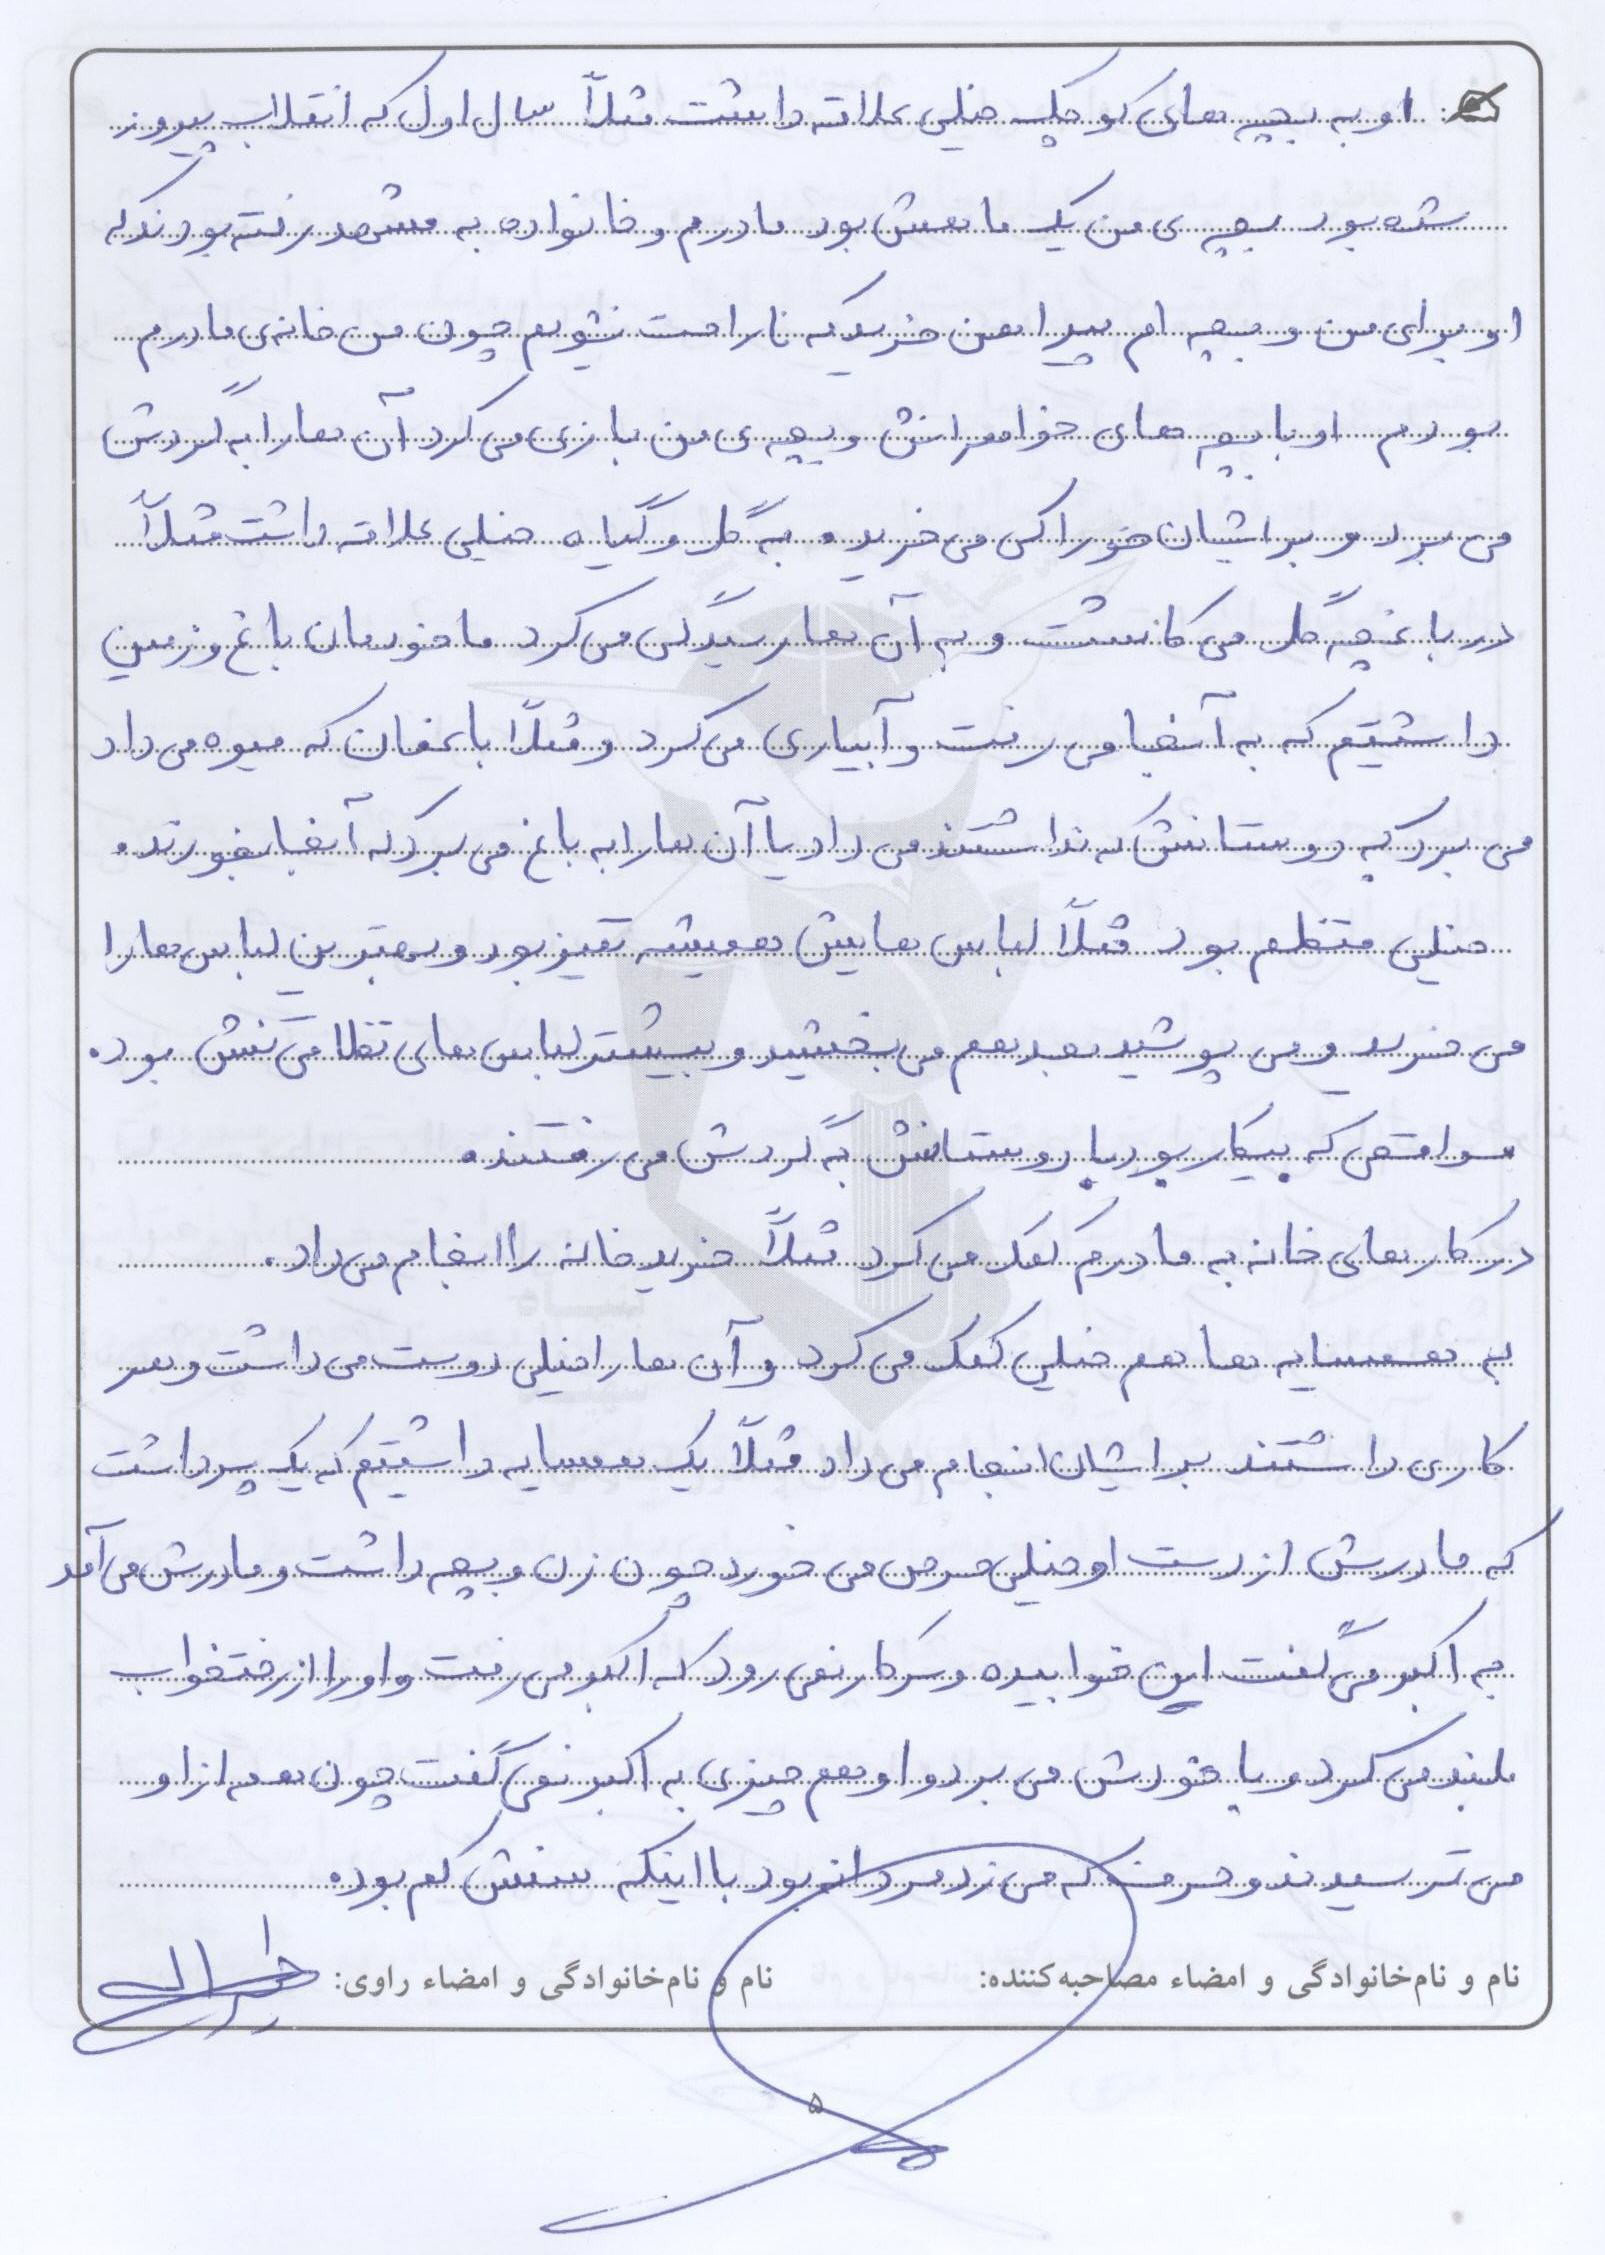 او به بچه های کوچک خیلی علاقه داشت مثلاً سال اول که انقلاب پیروز
شده بود بچه ی من یک ماهش بود مادرم و خانواده به مشهد رفته بودند که
او برای من و بچه ام پیراهن خرید که ناراحت نشویم چون من خانه ی مادرم
بودم او با بچه های خواهرانش و بچه ی من بازی می کرد آن ها را به گردش
می برد و برایشان خوراکی می خرید و به گل و گیاه خیلی علاقه داشت مثلاً
در باغچه گل می کاشت و به آن ها رسیدگی می کرد ما خودمان باغ و زمین
داشتیم که به آنجا می رفت و آبیاری می کرد و مثلاً باغمان که میوه می داد
می برد به دوستانش که نداشتند می داد یا آن ها را به باغ می برد که آنجا بخورند.
خیلی منظم بود مثلاً لباس هایش همیشه تمیز بود و بهترین لباس ها را
می خرید و می پوشید بعد هم می بخشید و بیشتر لباس های نظامی تنش بود.
مواقعی که بیکار بود با دوستانش به گردش می رفتند.
در کارهای خانه به مادرم کمک می کرد مثلاً خرید خانه را انجام می داد.
به همسایه ها هم خیلی کمک می کرد و آن ها را خیلی دوست می داشت و هر
کاری داشتند برایشان انجام می داد مثلاً یک همسایه داشتیم که یک پسر داشت
که مادرش از دست او خیلی حرص می خورد چون زن و بچه داشت و مادرش می آمد
به اکبر می گفت این خوابیده و سر کار نمی رود که اکبر می رفت و او را از رختخواب
بلند می کرد و با خودش می برد و او هم چیزی به اکبر نمی گفت چون همه از او
می ترسیدند و حرف که می زد مردانه بود با اینکه سنش کم بود.
نام و نام خانوادگی و امضاء مصاحبه کننده: نام و نام خانوادگی و امضاء راوی:
۵